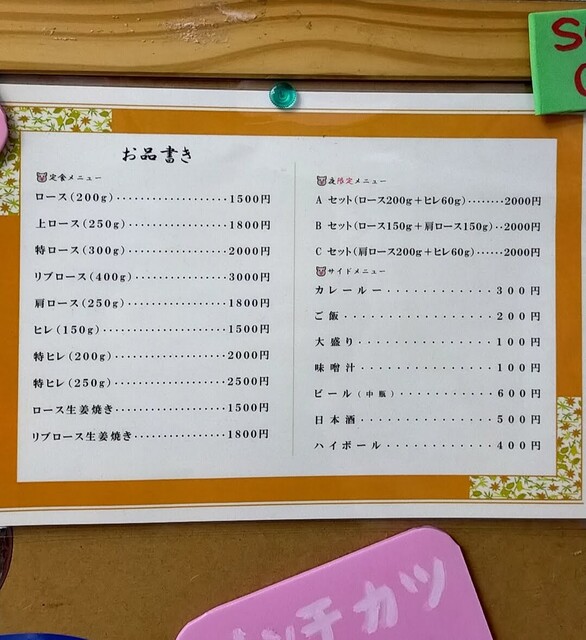 お品書き
定食メニュー
ロース(200g)･･････････････････1500円
上ロース(250g)････････････････1800円
特ロース(300g)････････････････2000円
リブロース(400g)･･････････････3000円
肩ロース(250g)････････････････1800円
ヒレ(150g)････････････････････1500円
特ヒレ(200g)･･････････････････2000円
特ヒレ(250g)･･････････････････2500円
ロース生姜焼き････････････････1500円
リブロース生姜焼き････････････1800円
夜限定メニュー
A セット(ロース200g＋ヒレ60g)･･･････2000円
B セット(ロース150g＋肩ロース150g)･･2000円
C セット(肩ロース200g＋ヒレ60g)･････2000円
サイドメニュー
カレールー・・・・・・・・・・・・300円
ご飯・・・・・・・・・・・・・・・200円
大盛り・・・・・・・・・・・・・・100円
味噌汁・・・・・・・・・・・・・・100円
ビール(中瓶)・・・・・・・・・・・600円
日本酒・・・・・・・・・・・・・・500円
ハイボール・・・・・・・・・・・・400円
チカツ